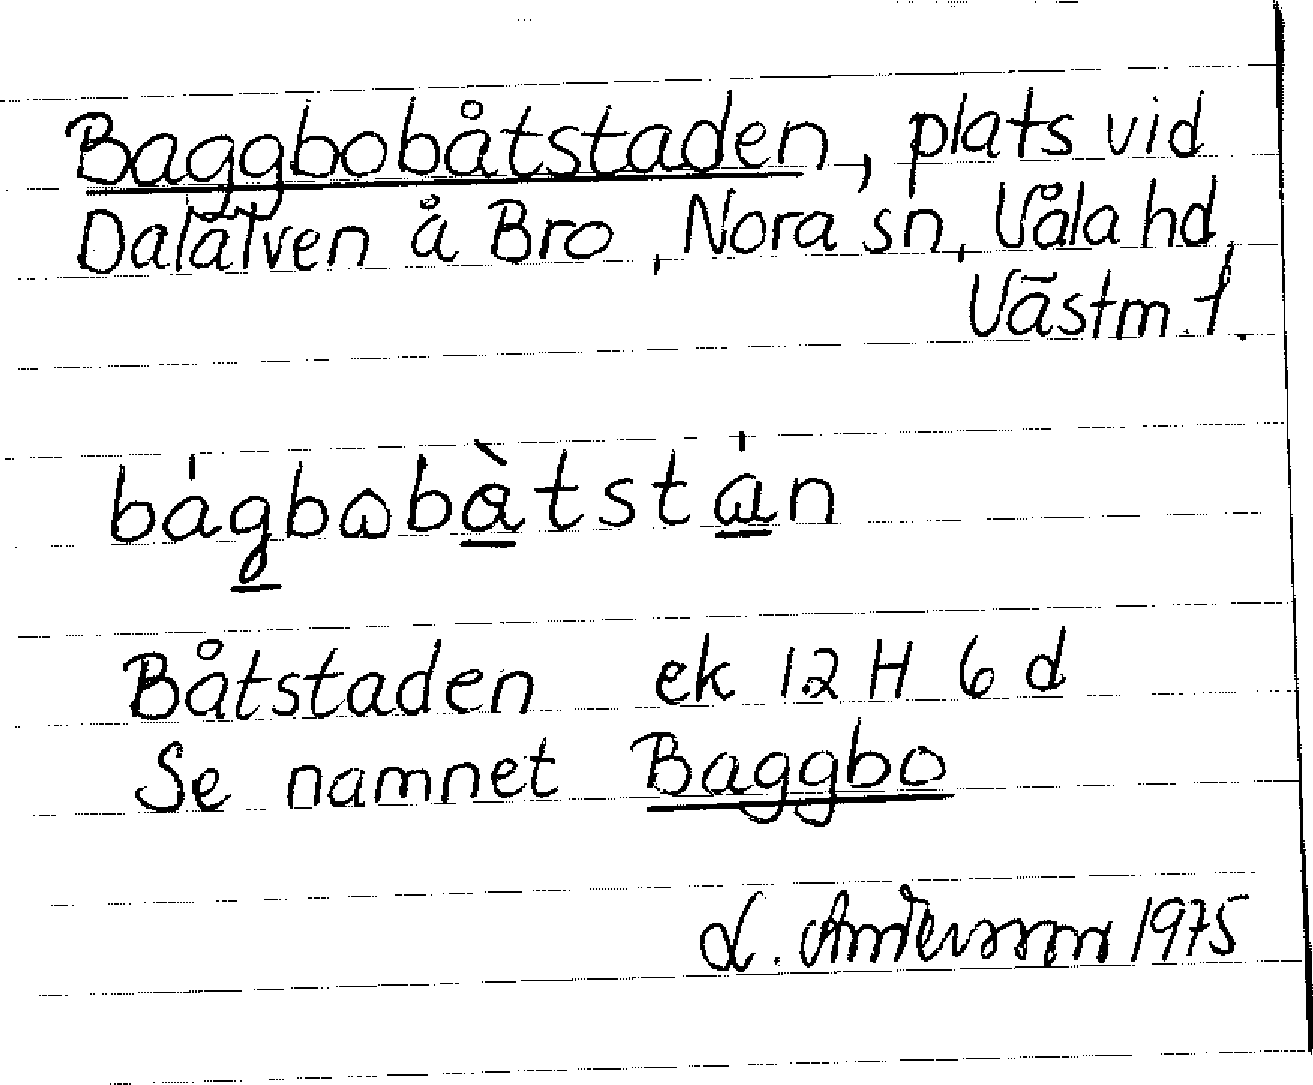 Baggbobåtstaden, plats vid
Dalälven å Bro, Nora sn, Våla hd,
Västm. l.
bágbωbàtstán
Båtstaden ek 12 H 6 d
Se namnet Baggbo
L. Andersson 1975